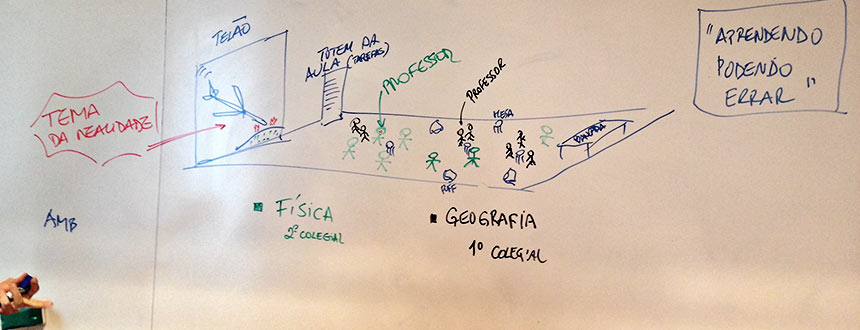 TELÃO
TOTEM AR
AULA (TAREFAS)
PROFESSOR
PROFESSOR
MESA
"APRENDENDO
PODENDO
ERRAR"
TEMA
DA REALIDADE
PUFF
ÁMB
FÍSICA
2º COLEGIAL
GEOGRAFIA
1º COLEGIAL